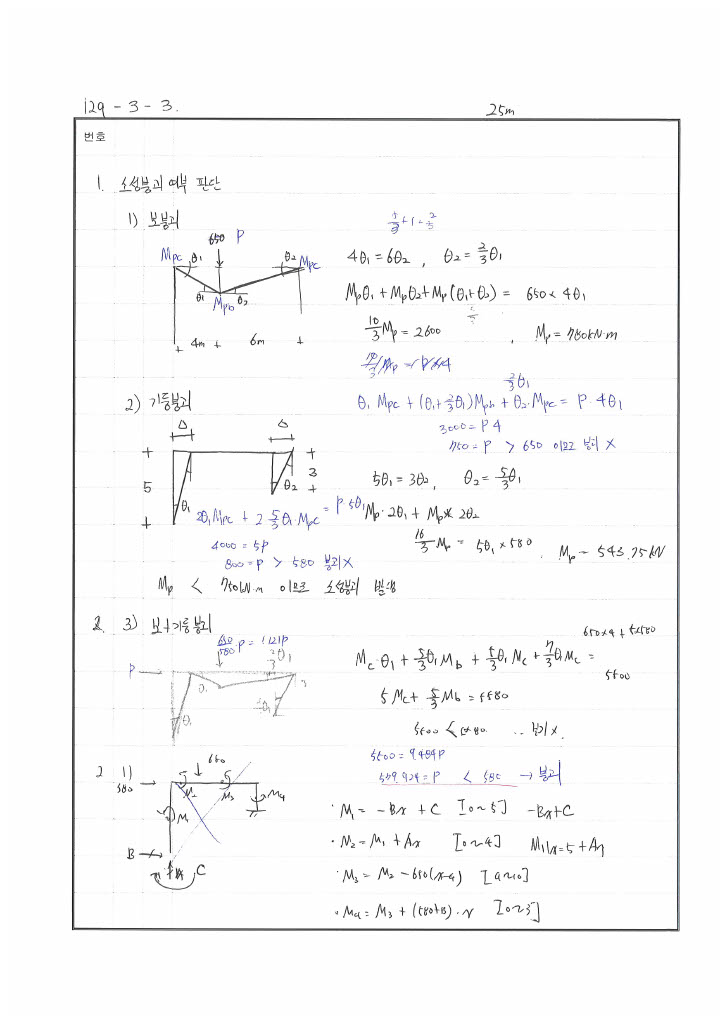 129 - 3 - 3.
25m
번호
1. 소성붕괴 여부 판단
1) 보붕괴
650 P
Mpc θ1 θ2 Mpc
θ1 Mpb θ2
4m 6m
4θ1 = 6θ2 , θ2 = 2/3 θ1
Mpθ1 + Mpθ2 + Mp(θ1+θ2) = 650 × 4θ1
10/3 Mp = 2600 , Mp = 780kN·m
2/3 θ1
θ1 Mpc + (θ1 + 2/3 θ1) Mpb + θ2·Mpc = P·4θ1
3000 = P4
750 = P > 650 이므로 붕괴 X
2) 기둥붕괴
Δ Δ
5 θ1 θ2 3
5θ1 = 3θ2 , θ2 = 5/3 θ1
2θ1 Mpc + 2 5/3 θ1·Mpc = P 5θ1
Mp·2θ1 + Mp 2θ2
16/3 Mp = 5θ1 × 580 . Mp = 543.75kN
4000 = 5P
800 = P > 580 붕괴 X
Mp < 750kN·m 이므로 소성붕괴 발생
2. 3) 보+기둥붕괴
650/580 P = 1.121P
P
θ1 2/3 θ1
θ1
650×4 + 5×580
Mc·θ1 + 5/3 θ1 Mb + 5/3 θ1 Mc + 7/3 θ1 Mc =
5500
5 Mc + 5/3 Mb =
붕괴 X.
5500 = 9.484P
579.924 = P < 580 → 붕괴
2 1)
580 650
M2 M3 M4
M1
B A C
· M1 = -Bx + C [0~5] -Bx+C
· M2 = M1 + Ax [0~4] M1|x=5 + Ax
· M3 = M2 - 650(x-4) [4~10]
· M4 = M3 + (580+B)·x [0~3]